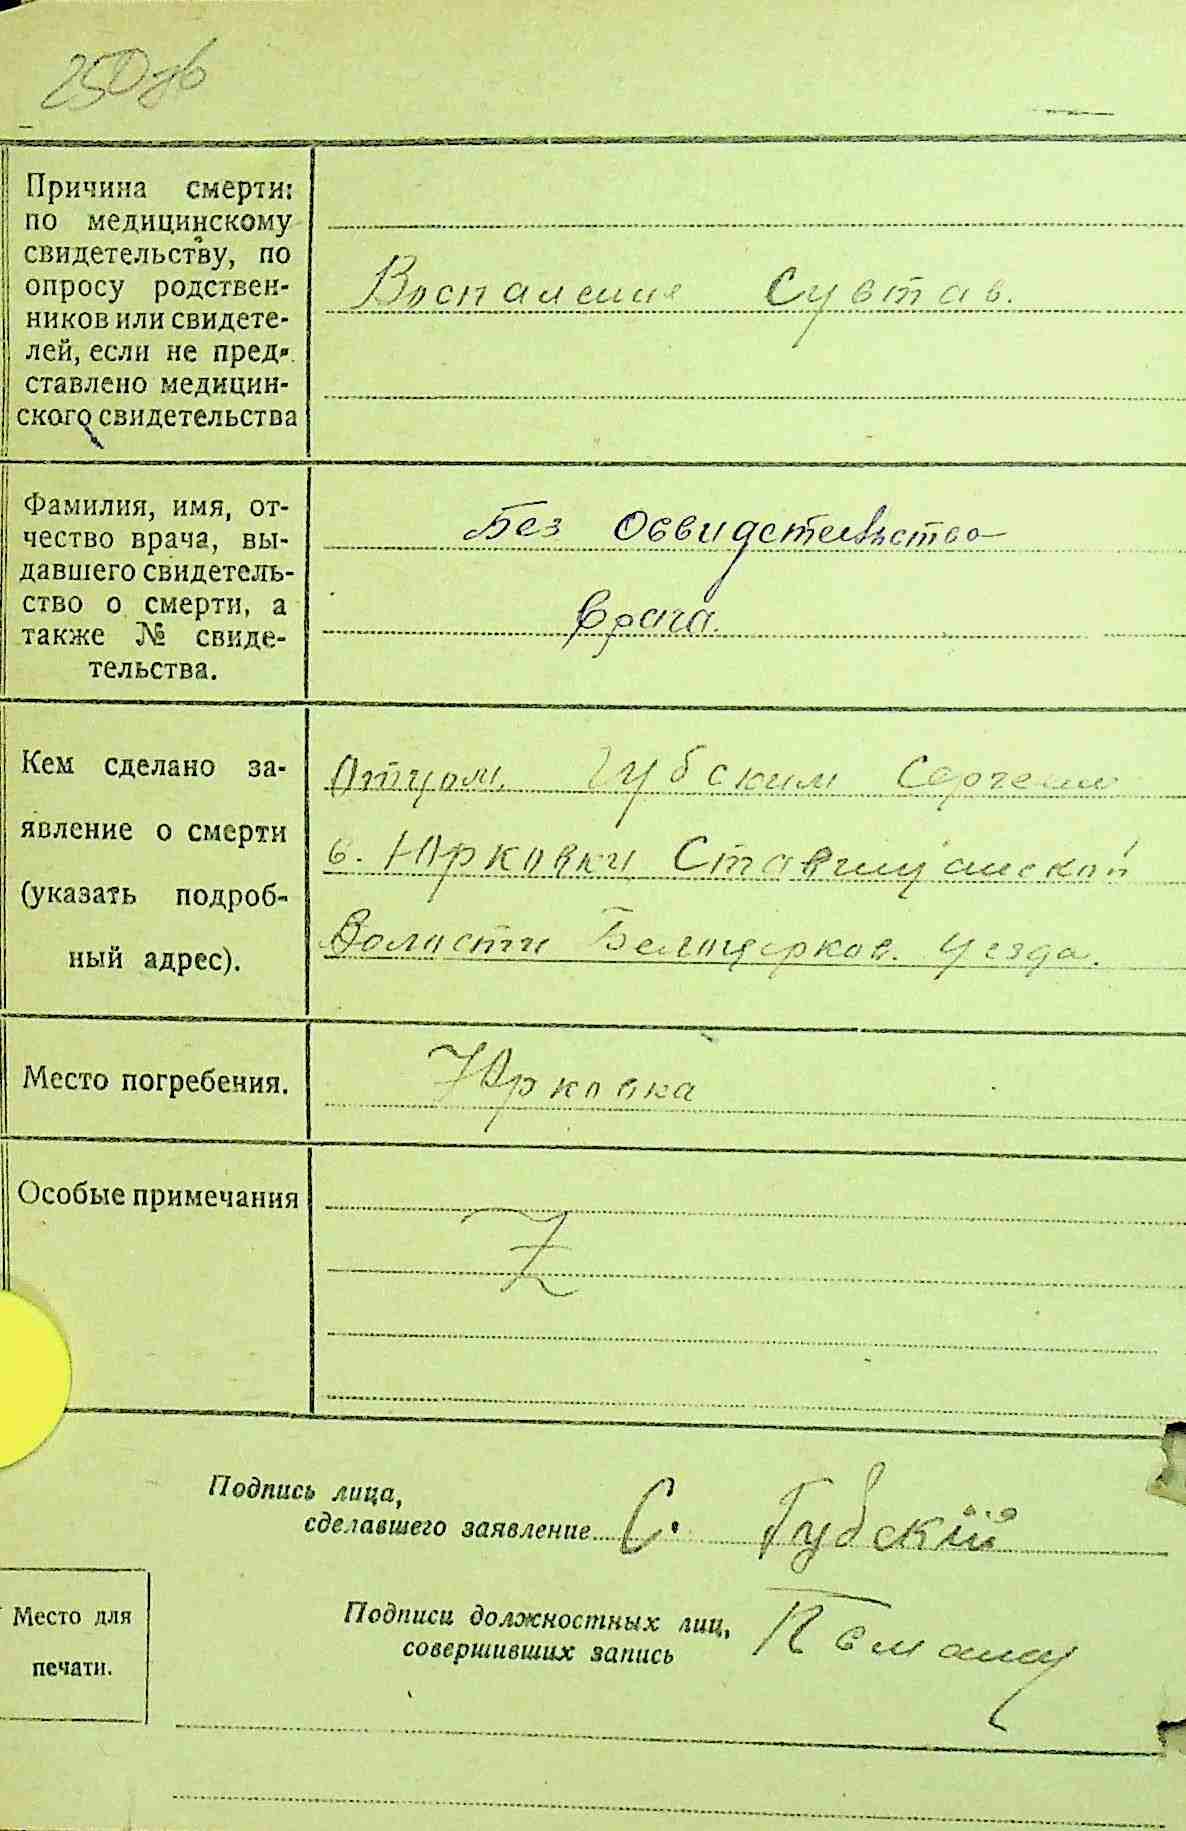 250 зв
Причина смерти:
по медицинскому
свидетельству, по
опросу родствен-
ников или свидете-
лей, если не пред-
ставлено медицин-
ского свидетельства
Воспаление Сувтав.
Фамилия, имя, от-
чество врача, вы-
давшего свидетель-
ство о смерти, а
также № свиде-
тельства.
Без Освидетельство
врача.
Кем сделано за-
явление о смерти
(указать подроб-
ный адрес).
Отцом Губским Сергеем
с. Юрковки Ставищанской
Волости Белоцерков. уезда.
Место погребения.
Юрковка
Особые примечания
Z
Подпись лица,
сделавшего заявление С. Губскій
Подписи должностных лиц,
совершивших запись
Место для
печати.